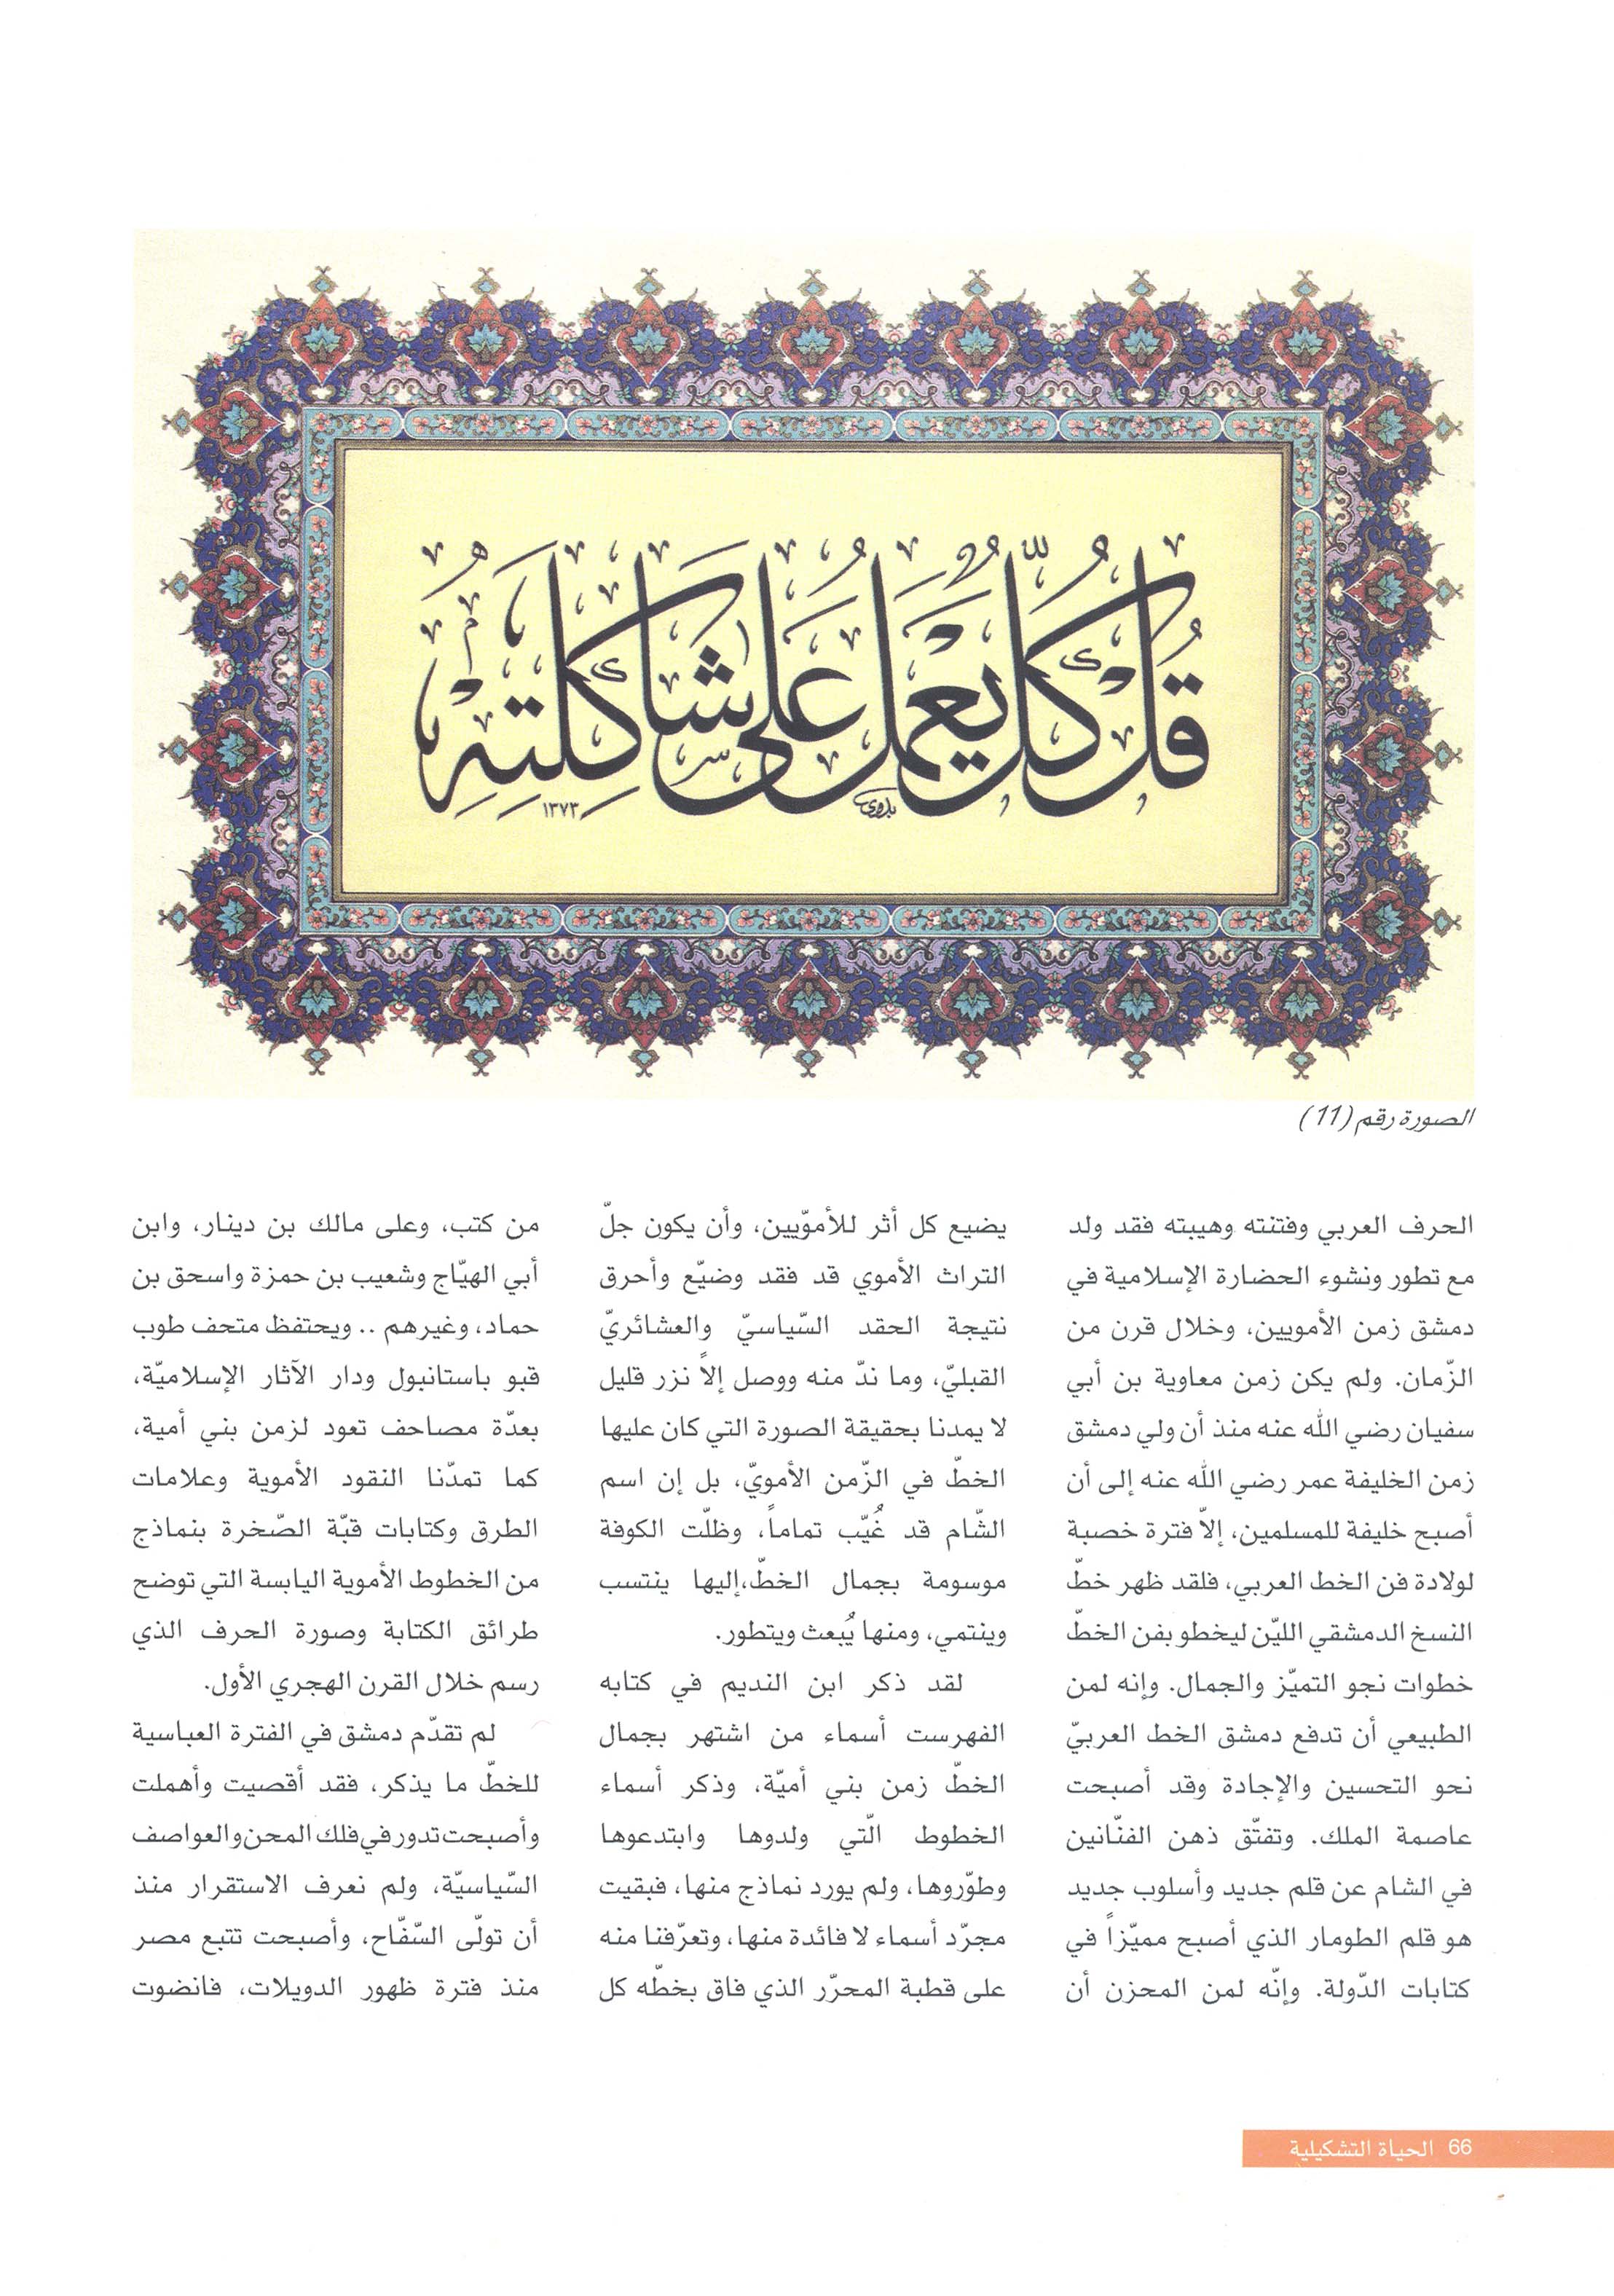 قُلْ كُلٌّ يَعْمَلُ عَلَىٰ شَاكِلَتِهِ
بدوي
١٣٧٣
الصورة رقم (11)
الحرف العربي وفتنته وهيبته فقد ولد
مع تطور ونشوء الحضارة الإسلامية في
دمشق زمن الأمويين، وخلال قرن من
الزّمان. ولم يكن زمن معاوية بن أبي
سفيان رضي الله عنه منذ أن ولي دمشق
زمن الخليفة عمر رضي الله عنه إلى أن
أصبح خليفة للمسلمين، إلاّ فترة خصبة
لولادة فن الخط العربي، فلقد ظهر خطّ
النسخ الدمشقي الليّن ليخطو بفن الخطّ
خطوات نجو التميّز والجمال. وإنه لمن
الطبيعي أن تدفع دمشق الخط العربيّ
نحو التحسين والإجادة وقد أصبحت
عاصمة الملك. وتفتّق ذهن الفنّانين
في الشام عن قلم جديد وأسلوب جديد
هو قلم الطومار الذي أصبح مميّزاً في
كتابات الدّولة. وإنّه لمن المحزن أن
يضيع كل أثر للأموّيين، وأن يكون جلّ
التراث الأموي قد فقد وضيّع وأحرق
نتيجة الحقد السّياسيّ والعشائريّ
القبليّ، وما ندّ منه ووصل إلاّ نزر قليل
لا يمدنا بحقيقة الصورة التي كان عليها
الخطّ في الزّمن الأمويّ، بل إن اسم
الشّام قد غُيّب تماماً، وظلّت الكوفة
موسومة بجمال الخطّ،إليها ينتسب
وينتمي، ومنها يُبعث ويتطور.
لقد ذكر ابن النديم في كتابه
الفهرست أسماء من اشتهر بجمال
الخطّ زمن بني أميّة، وذكر أسماء
الخطوط الّتي ولدوها وابتدعوها
وطوّروها، ولم يورد نماذج منها، فبقيت
مجرّد أسماء لا فائدة منها، وتعرّفنا منه
على قطبة المحرّر الذي فاق بخطّه كل
من كتب، وعلى مالك بن دينار، وابن
أبي الهيّاج وشعيب بن حمزة واسحق بن
حماد، وغيرهم .. ويحتفظ متحف طوب
قبو باستانبول ودار الآثار الإسلاميّة،
بعدّة مصاحف تعود لزمن بني أمية،
كما تمدّنا النقود الأموية وعلامات
الطرق وكتابات قبّة الصّخرة بنماذج
من الخطوط الأموية اليابسة التي توضح
طرائق الكتابة وصورة الحرف الذي
رسم خلال القرن الهجري الأول.
لم تقدّم دمشق في الفترة العباسية
للخطّ ما يذكر، فقد أقصيت وأهملت
وأصبحت تدور في فلك المحن والعواصف
السّياسيّة، ولم نعرف الاستقرار منذ
أن تولّى السّفّاح، وأصبحت تتبع مصر
منذ فترة ظهور الدويلات، فانضوت
66 الحياة التشكيلية